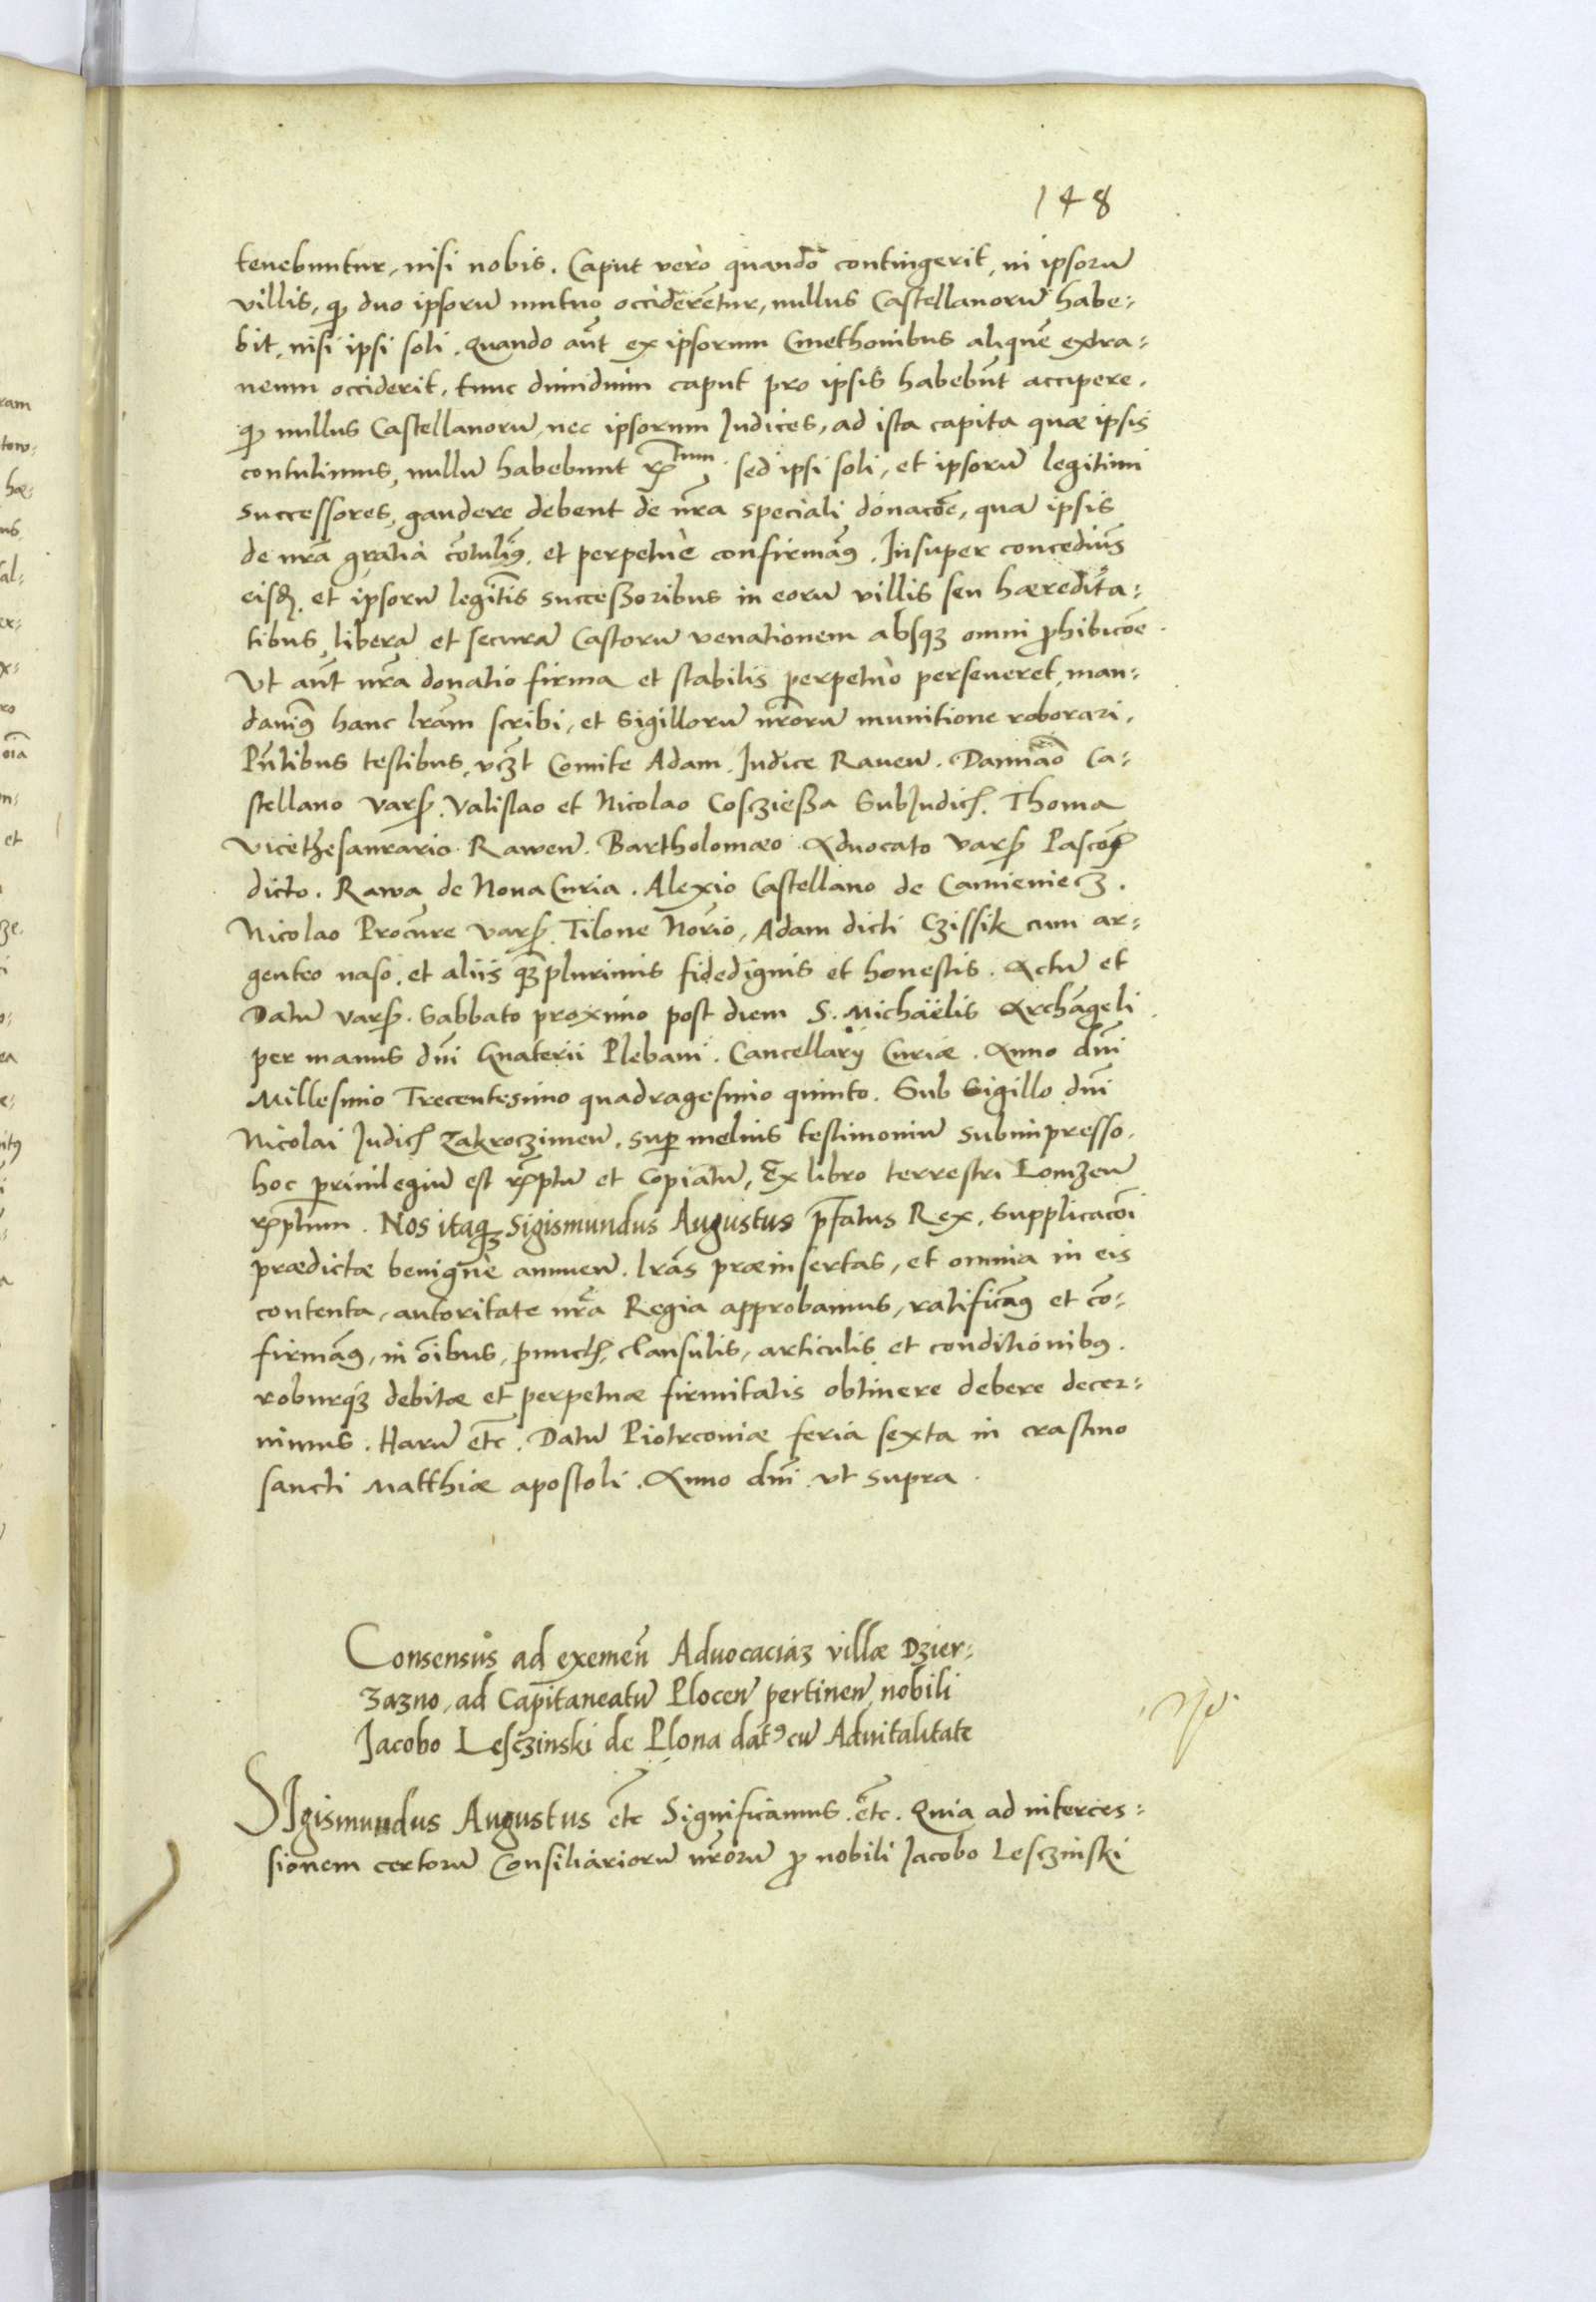 148
tenebuntur, nisi nobis. Caput verò quandō contingerit, in ipsorū
villis, qđ duo ipsorū mutuo occiderētur, nullus Castellanorū habe⸗
bit, nisi ipsi soli. Quando aūt ex ipsorum Cmethonibus aliquē extra⸗
neum occiderit, tunc dimidium caput pro ipsis habebūt accipere.
qđ nullus Castellanorū, nec ipsorum Judices, ad ista capita quæ ipsis
contulimus, nullū habebunt rētum. sed ipsi soli, et ipsorū legitimi
successores, gaudere debent de nrā speciali donacōe, quā ipsis
de nrā gratia cōtulim9, et perpetuè confirmām9. Insuper concedim9
eisd., et ipsorū legitīs successoribus in eorū villis seu hæredita⸗
tibus, liberā et securā Castorū venationem absq3 omni ꝓhibicōe.
Vt aūt nrā donatio firma et stabilis perpetuò perseueret, man⸗
dauim9 hanc lrām scribi, et Sigillorū nrōrū munitione roborari.
Pn̄tibus testibus, vcz̄t Comite Adam. Judice Rauen̄. Damiāo Ca⸗
stellano Vars. Valislao et Nicolao Cosczießa SubJudic. Thoma
Vicethesaurario Rawen̄. Bartholomæo Aduocato Vars Pascōs
dicto. Rawa de Noua Curia. Alexio Castellano de Camieniecz.
Nicolao Procūre Vars. Tilone Nōrio, Adam dicti Czissik cum ar⸗
genteo naso, et aliis q3plurimis fidedignis et honestis. Actū et
Datū Vars. Sabbato proximo post diem S. Michaëlis Archāgeli.
per manus dn̄i Gnaterii Plebani. Cancellarij Curiæ. Anno dn̄i
Millesimo Trecentesimo quadragesimo quinto. Sub Sigillo dn̄i
Nicolai Judic Zakroczimen̄. sup melius testimoniū subimpresso.
hoc priuilegiū est rēptū et Copiatū, Ex libro terrestri Lomzen̄
rēptum. Nos itaq3 Sigismundus Augustus p̄fatus Rex, Supplicacōi
prædictæ benignè annuen̄. lrās præinsertas, et omnia in eis
contenta, autoritate nrā Regia approbamus, ratificām9 et cō⸗
firmām9, in ōibus, punct, clausulis, articulis et conditionib9.
roburq3 debitæ et perpetuæ firmitatis obtinere debere decer⸗
nimus. Harū etc̄. Datū Piotrconiæ feria sexta in crastino
sancti Matthiæ apostoli. Anno dn̄i vt supra.
Consensus ad exemen̄ Aduocaciā3 villæ Dzier⸗
zazno, ad Capitaneatū Plocen̄ pertinen̄ nobili
Jacobo Lesczinski de Plona dat9 cū Aduitalitate
SIgismundus Augustus etc̄ Significamus etc̄. Quia ad interces⸗
sionem certorū Consiliariorū nrōrū ꝓ nobili Jacobo Lesczinski